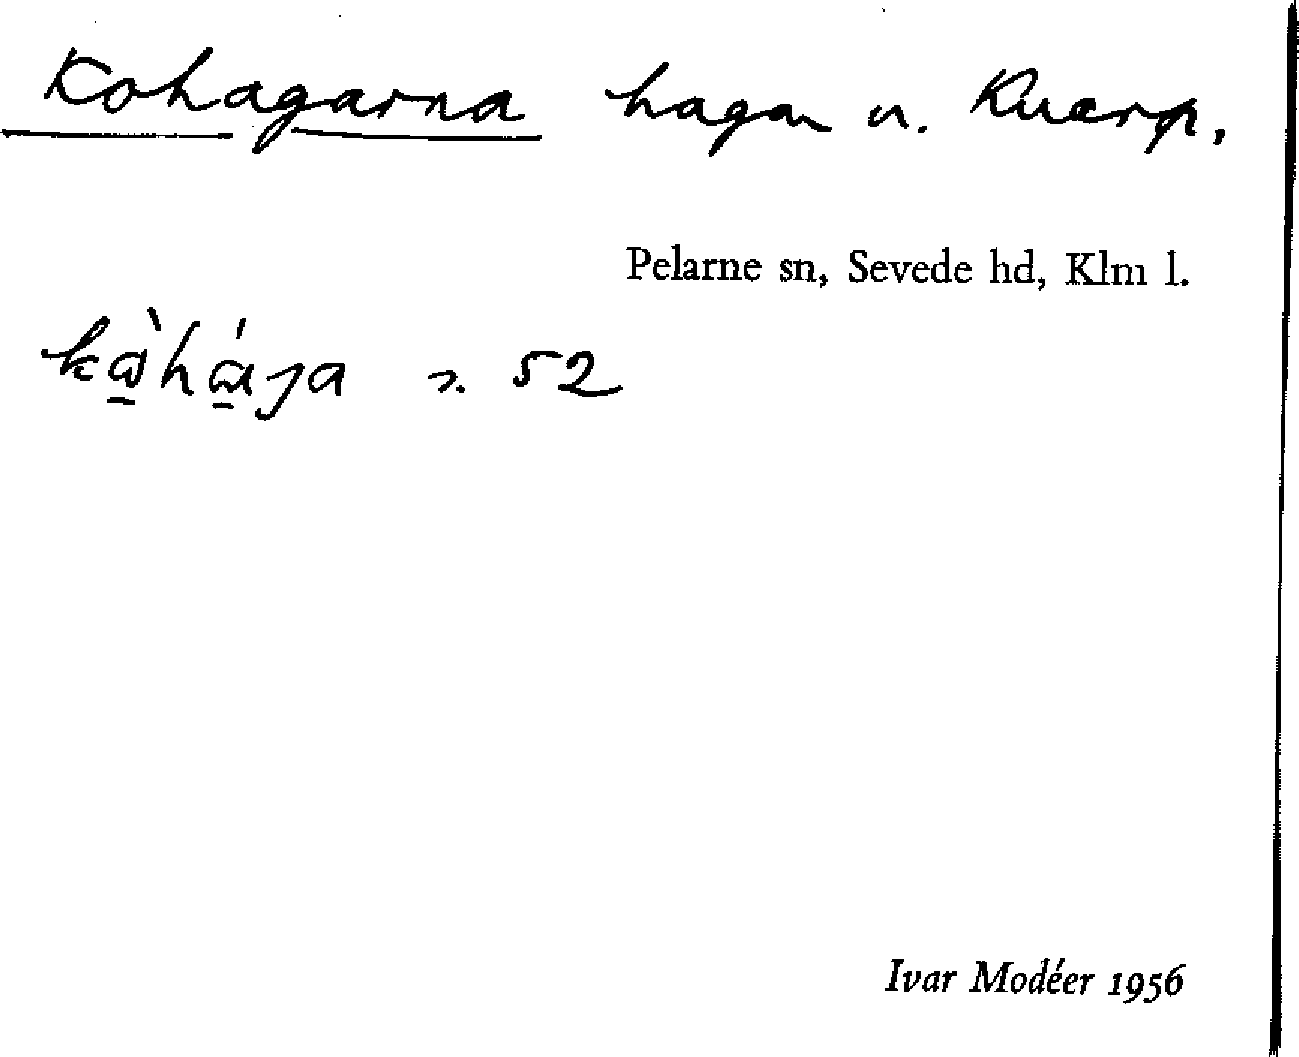 Kohagarna hagar u. Ruerp,
Pelarne sn, Sevede hd, Klm l.
52
Ivar Modéer 1956